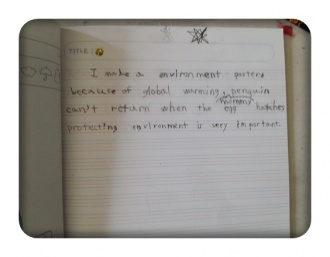 TITLE:
I make a environment posters
because of global warming, penguin
can't return when the egg hatches
mummy
protecting environment is very important.